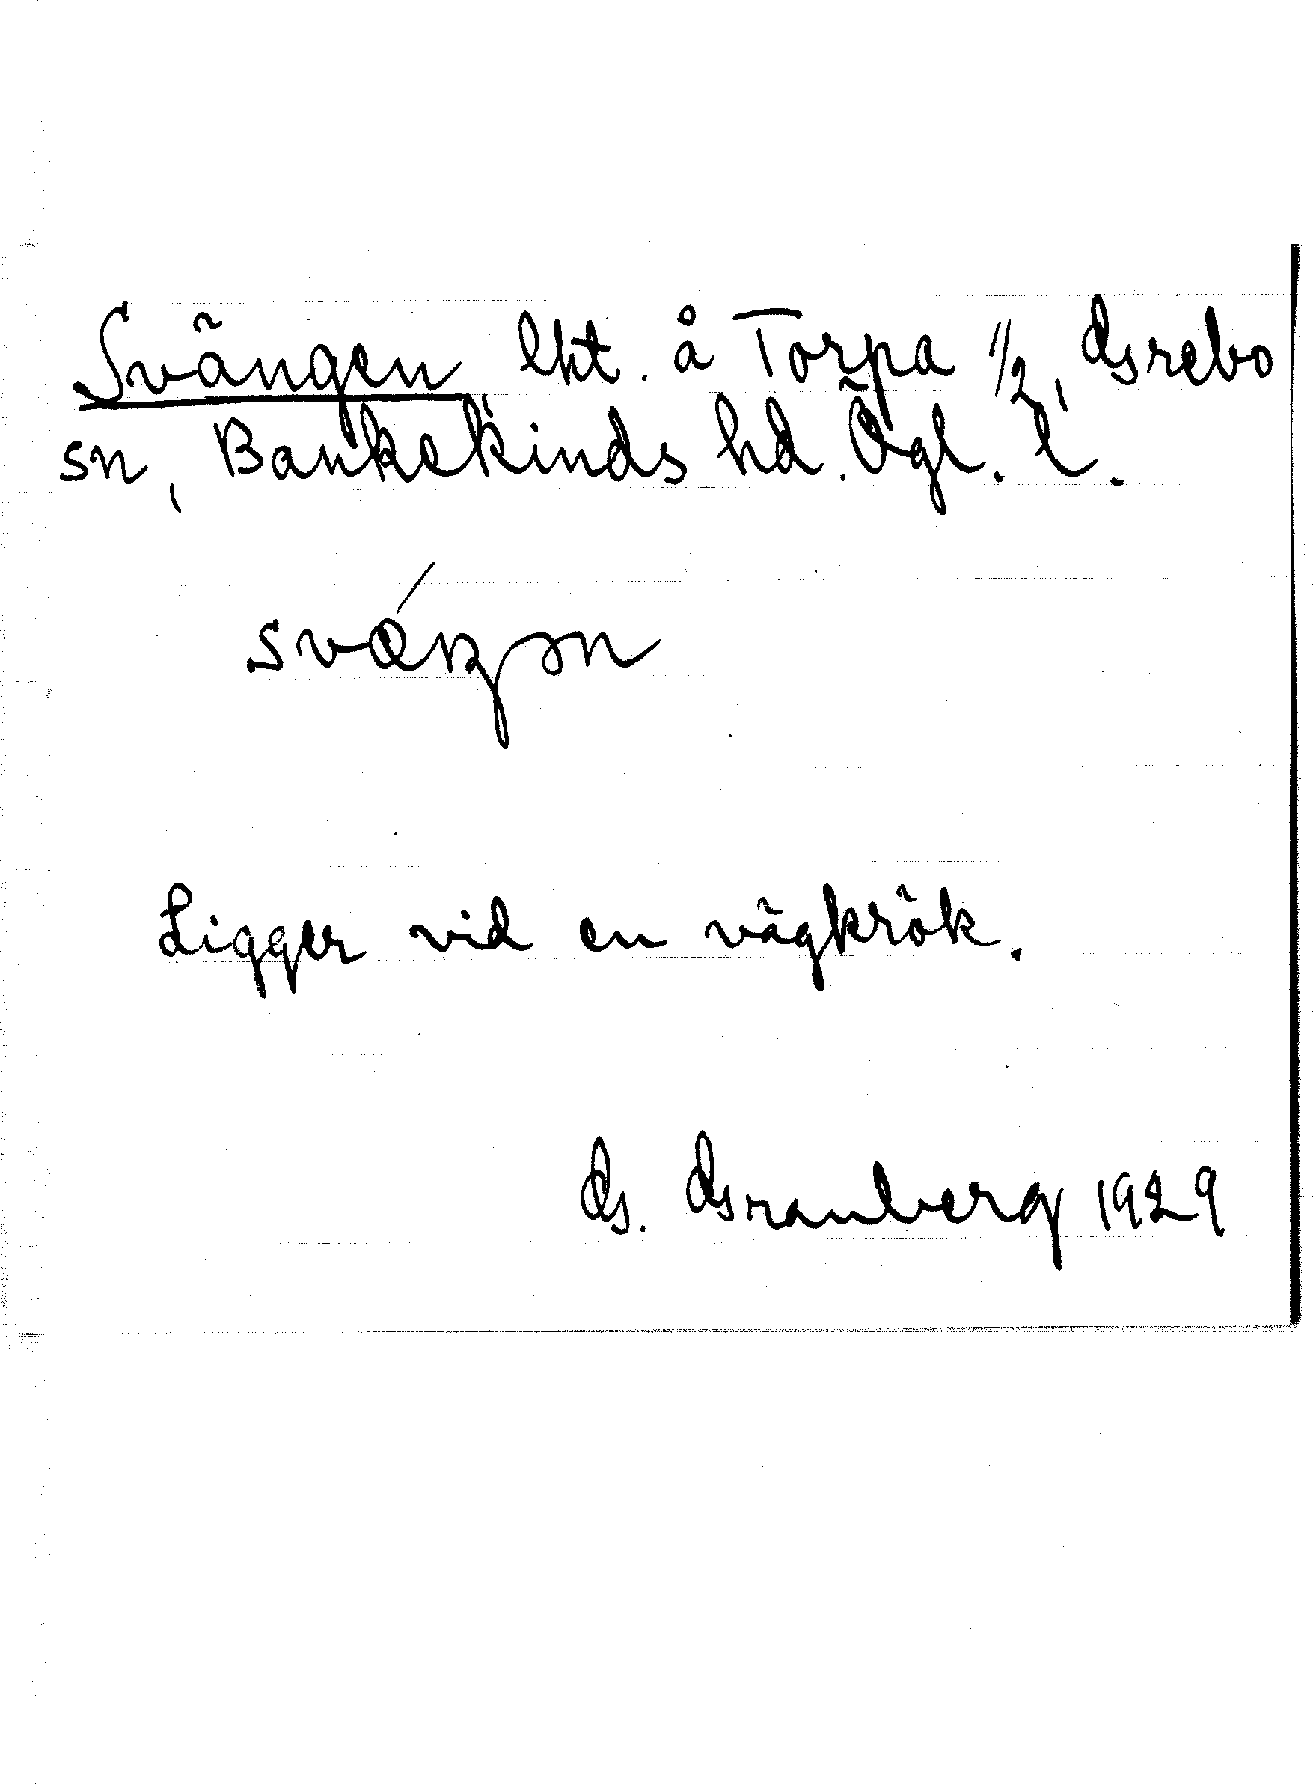 Svängen lht. å Torpa 1/2, Grebo
sn, Bankekinds hd. Ögl. l.
svæŋən
Ligger vid en vägkrök.
G. Granberg 1929